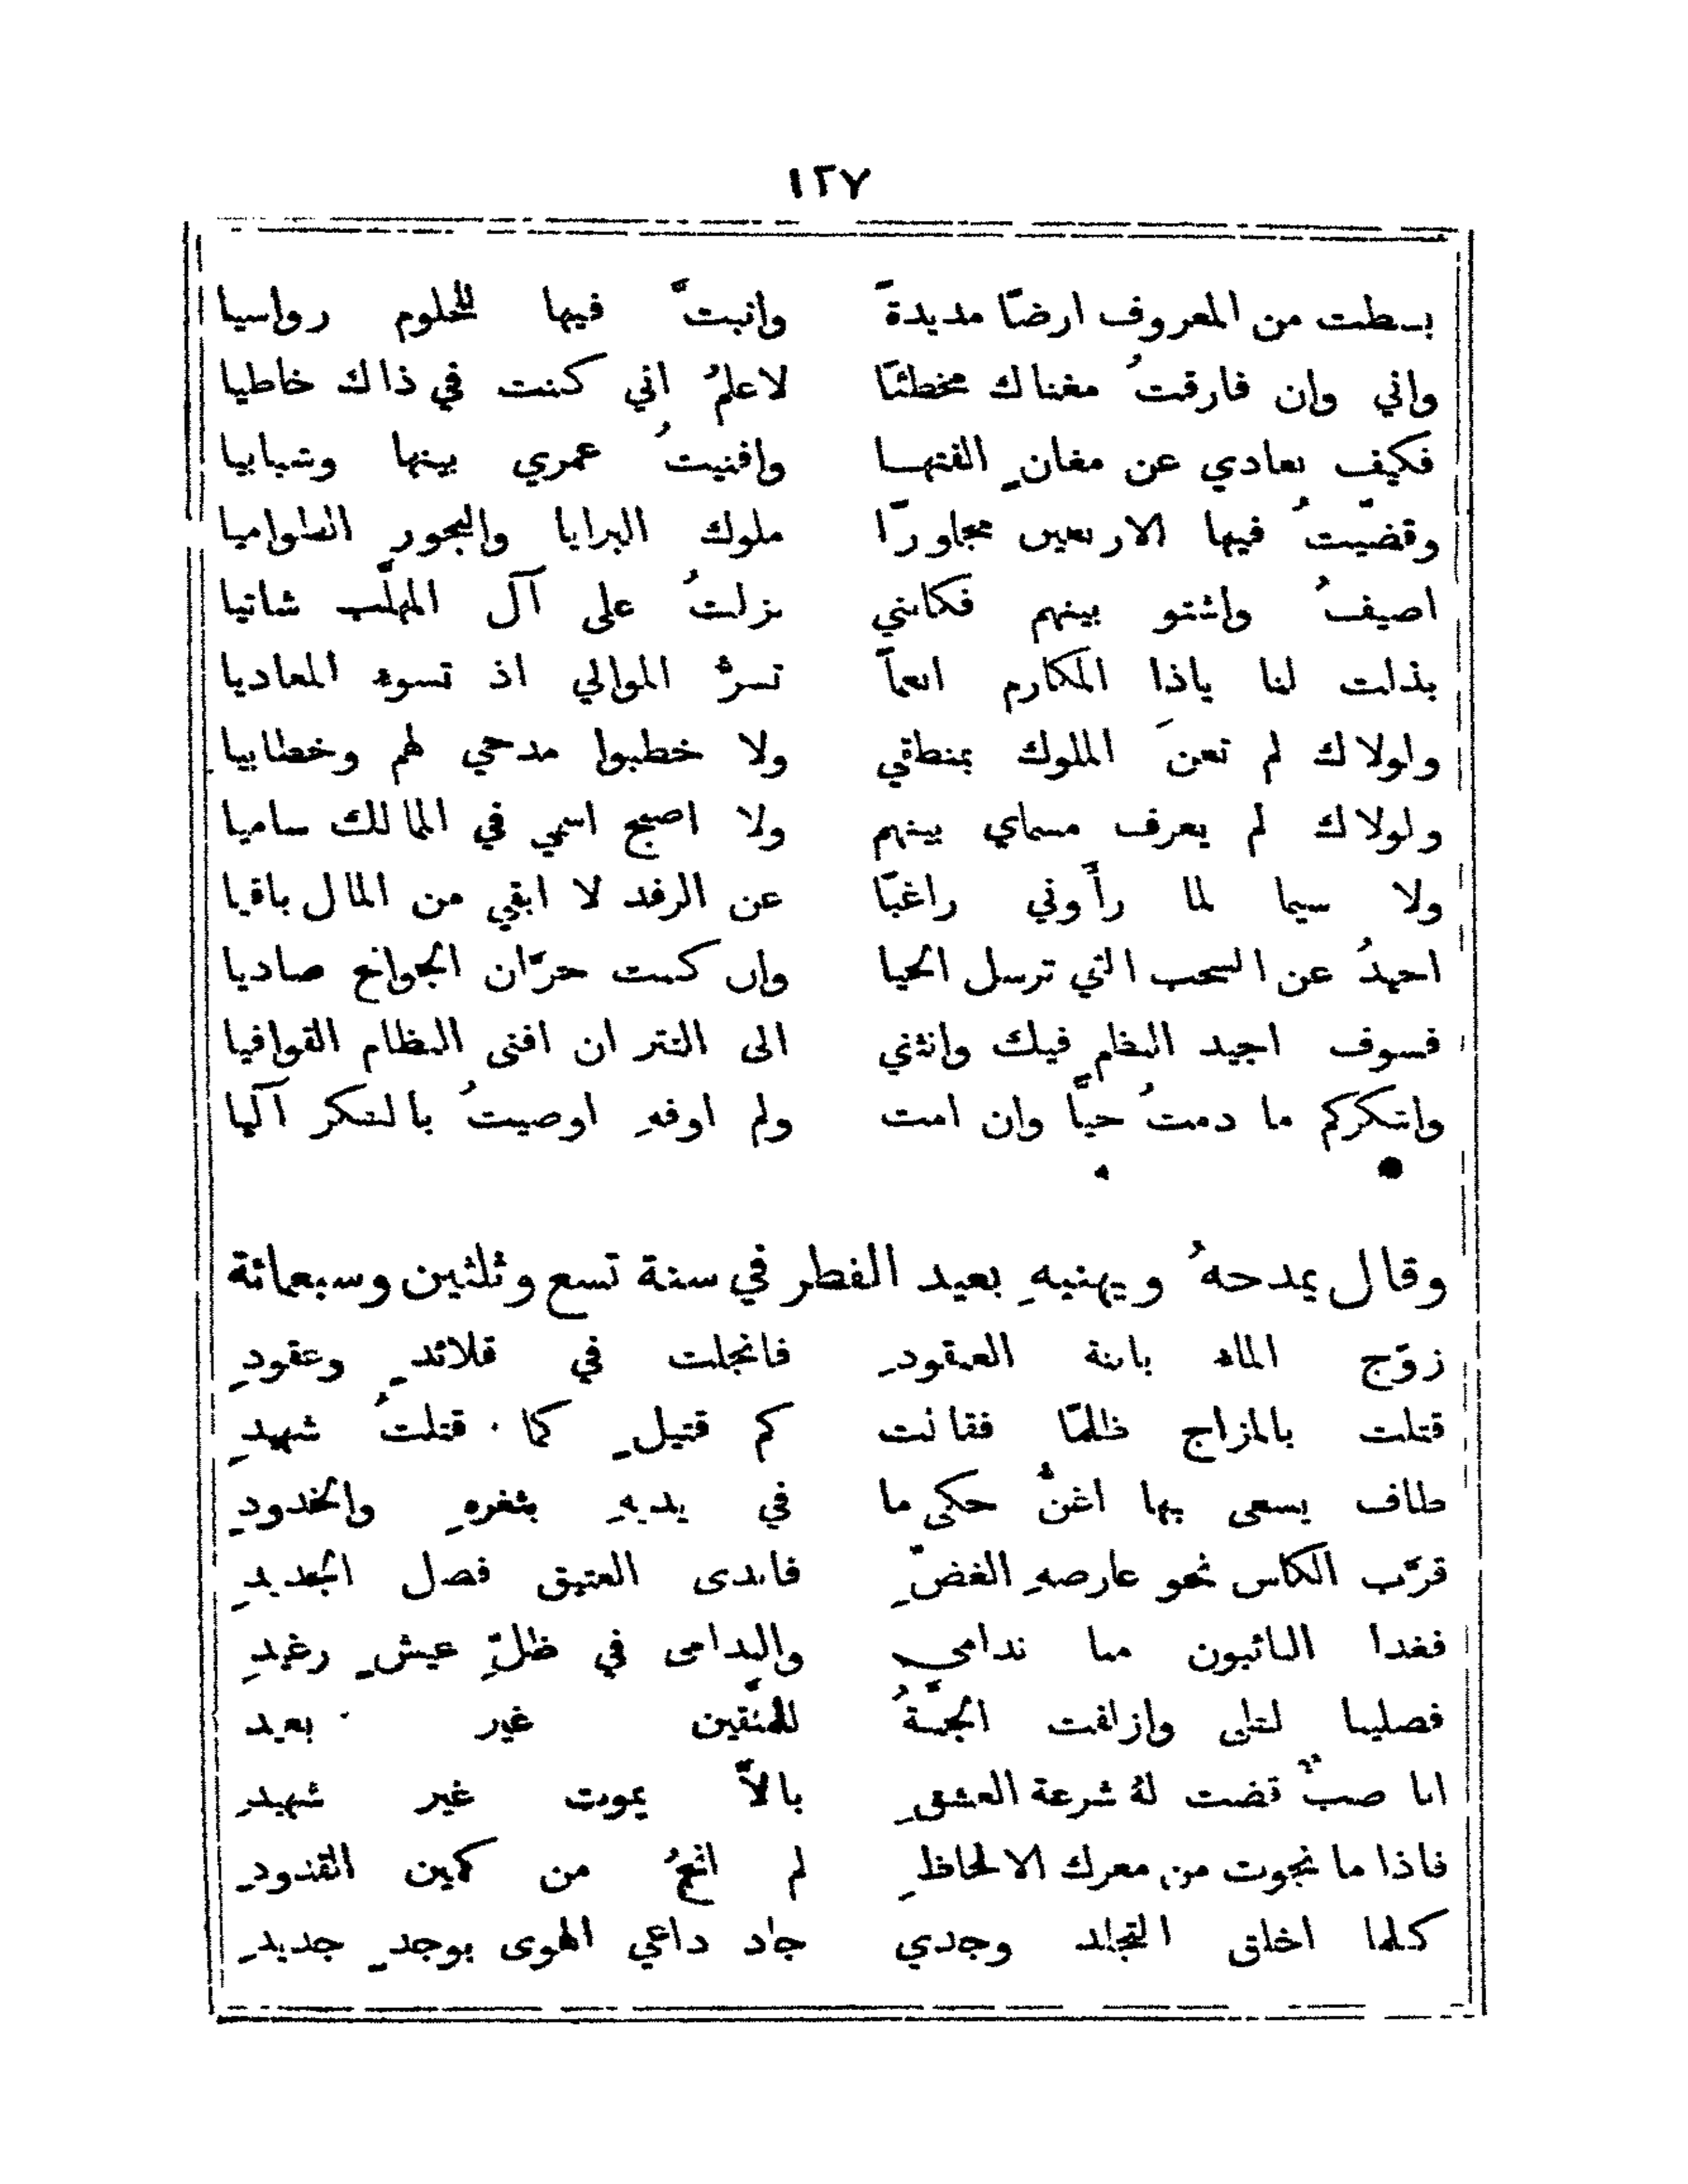 ١٢٧
بسطت من المعروف ارضًا مديدةً وانبتَّ فيها للحلوم رواسيا
واني وان فارقتُ مغناك مخطئًا لاعلمُ اني كنت في ذاك خاطيا
فكيف بعادي عن مغانٍ الفتها وافنيتُ عمري بينها وشبابيا
وقضّيتُ فيها الاربعين مجاورًا ملوك البرايا والبحور الطواميا
اصيفُ واشتو بينهم فكانني نزلتُ على آل المهلَّب شاتيا
بذلت لنا ياذا المكارم انعمًا تسرُّ الموالي اذ تسوءُ المعاديا
ولولاك لم تعنَ الملوك بمنطقي ولا خطبوا مدحي لهم وخطابيا
ولولاك لم يعرف مسماي بينهم ولا اصبح اسمي في الممالك ساميا
ولا سيما لما رأَوني راغبًا عن الرفد لا ابقي من المال باقيا
احيدُ عن السحب التي ترسل الحيا وان كنت حرَّان الجوانح صاديا
فسوف اجيد النظم فيك وانثني الى النثر ان افنى النظام القوافيا
واشكركم ما دمتُ حيًّا وان امت ولم اوفهِ اوصيتُ بالشكر آليا
وقال يمدحهُ ويهنيهِ بعيد الفطر في سنة تسع وثلثين وسبعمائة
زوّج الماء بابنة العنقودِ فانجلت في قلائدٍ وعقودِ
قتلت بالمزاج ظلمًا فقالت كم قتيلٍ كما قتلتُ شهيدِ
طاف يسعى بها اغنُّ حكى ما في يديهِ بثغرهِ والخدودِ
قرَّب الكاس نحو عارضهِ الغضِّ فابدى العتيق فضل الجديدِ
فغدا التائبون منا ندامي والندامى في ظلِّ عيشٍ رغيدِ
فصلينا لتلى وازلفت الجنَّةُ للمتَّقين غير بعيد
انا صبٌّ قضت لهُ شرعة العشقِ بالاَّ يموت غير شهيدِ
فاذا ما نجوت من معرك الالحاظِ لم انجُ من كمين القدودِ
كلما اخلق التجلد وجدي جاد داعي الهوى بوجدٍ جديدِ